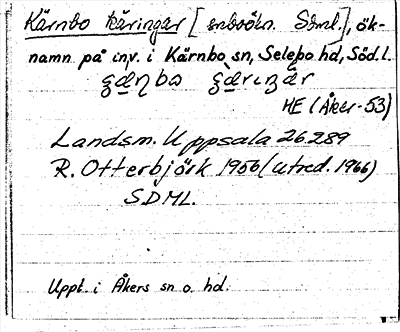 Kärnbo käringar [snboökn. Sdml.], ök-
namn på inv. i Kärnbo sn, Selebo hd, Söd.l.
HE (Åker -53)
Landsm. Uppsala 26.289
R. Otterbjörk 1956 (utred. 1966)
SDML.
Uppt. i Åkers sn o. hd.